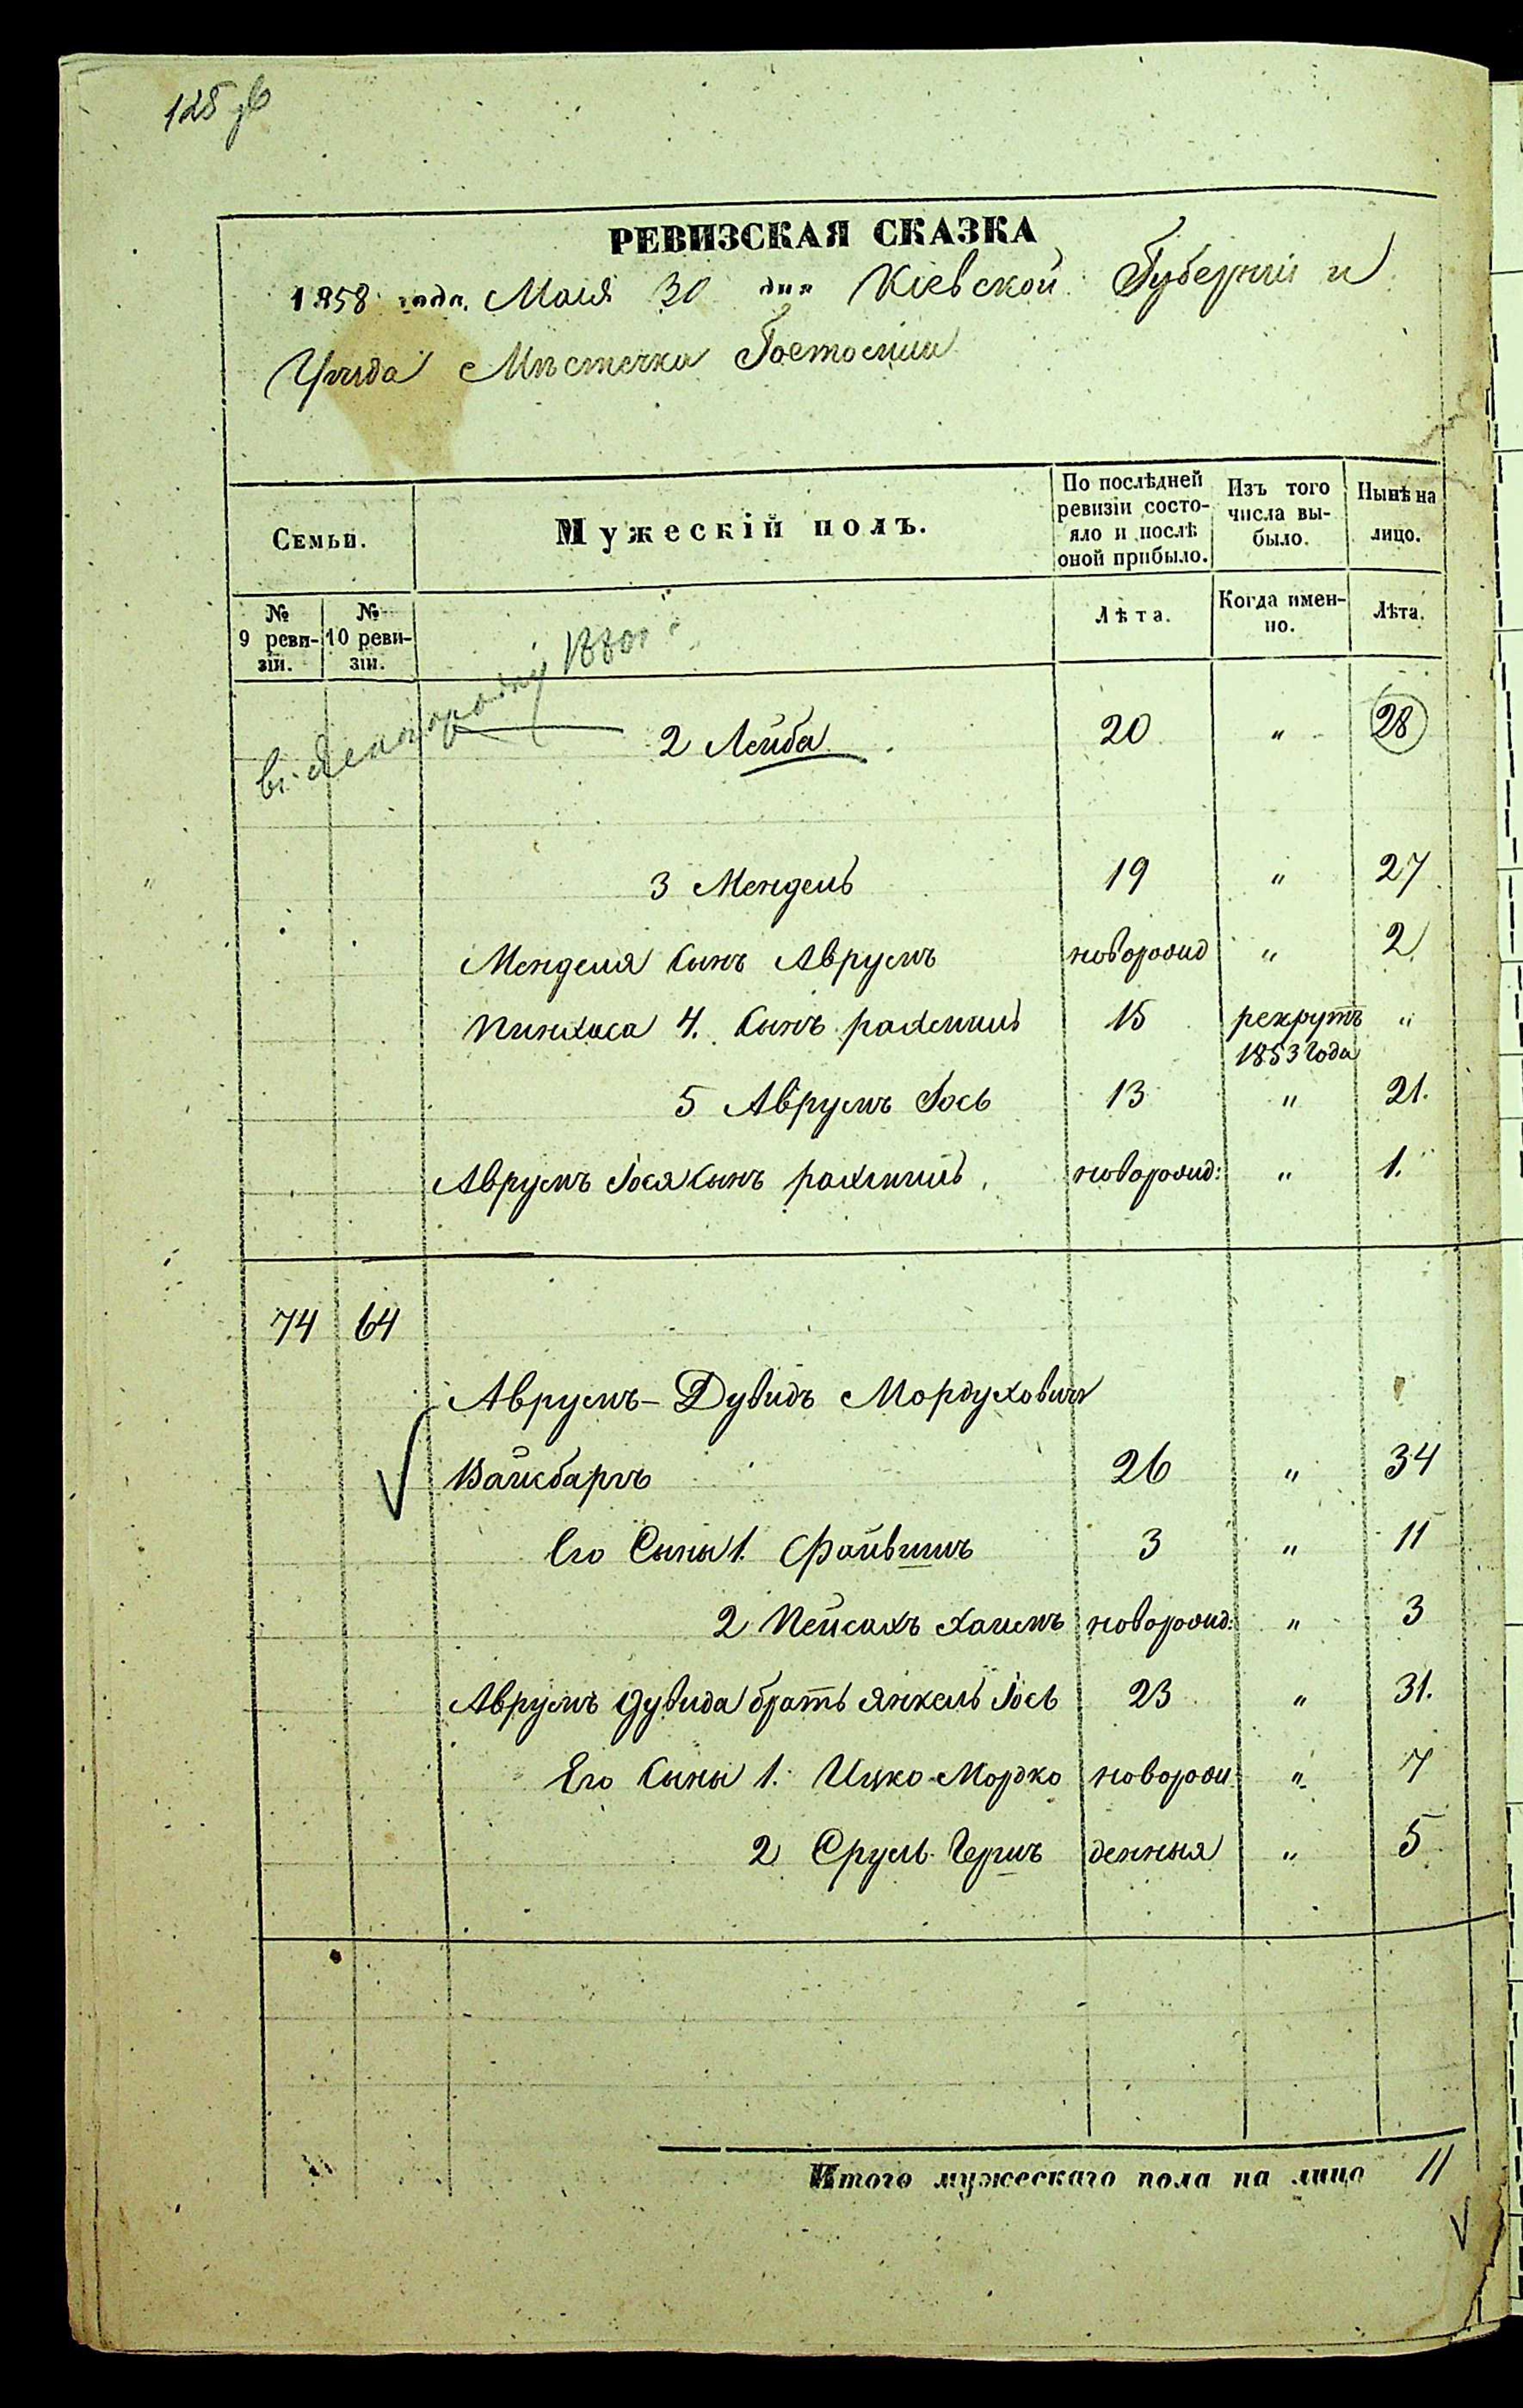 РЕВИЗСКАЯ СКАЗКА
1858 года. Маия 30 дня Кіевской Губерніи и
Уѣзда Мѣстечка Гостомля
Семьи.
Мужескій полъ.
По послѣдней ревизіи состояло и послѣ оной прибыло.
Изъ того числа выбыло.
Нынѣ на лицо.
№ 9 ревизіи.
№ 10 ревизіи.
Лѣта.
Когда именно.
Лѣта.
2 Лейба 20 " 28
3 Мендель 19 " 27
Менделя Сынъ Аврумъ новорожд " 2
Пинхаса 4. Сынъ рахмиль 15 рекрутъ 1853 года "
5 Аврумъ Іось 13 " 21.
Аврумъ Іося Сынъ рахмиль новорожд: " 1.
74 64
Аврумъ-Дувидъ Мордуховичъ
Вайсбаргъ 26 " 34
Его Сыны 1. Файвишъ 3 " 11
2 Пейсахъ Хаимъ новорожд: " 3
Аврумъ Дувида братъ Янкель Іось 23 " 31.
Его Сыны 1. Ицко-Мордко новорож " 7
2 Сруль-Гершъ денныя " 5
Итого мужескаго пола на лицо 11